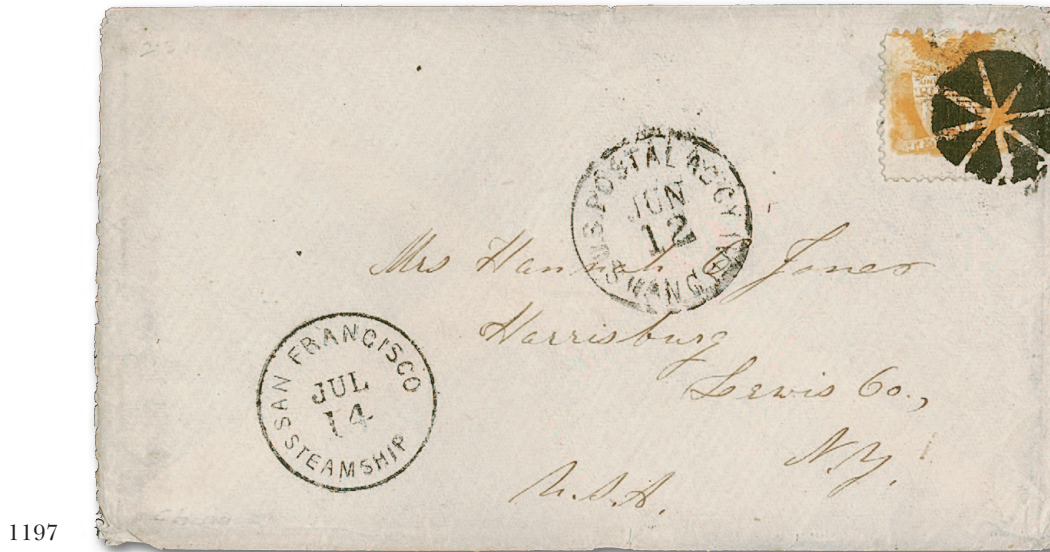 U.S. POSTAL AG'CY
JUN
12
SHANGHAI
Mrs Hannah C Jones
Harrisburg
Lewis Co.,
N.Y.
U.S.A.
SAN FRANCISCO
JUL
14
STEAMSHIP
1197